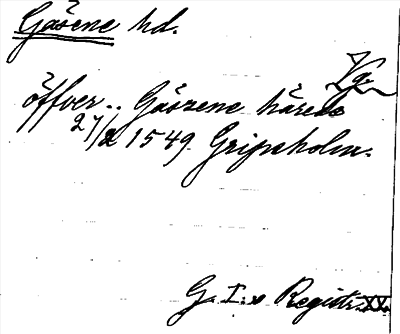 Gåsene hd.
Vg.
öffver.. Gåszene häredt
27/2 1549. Gripsholm.
G. I:s Registr. XX.